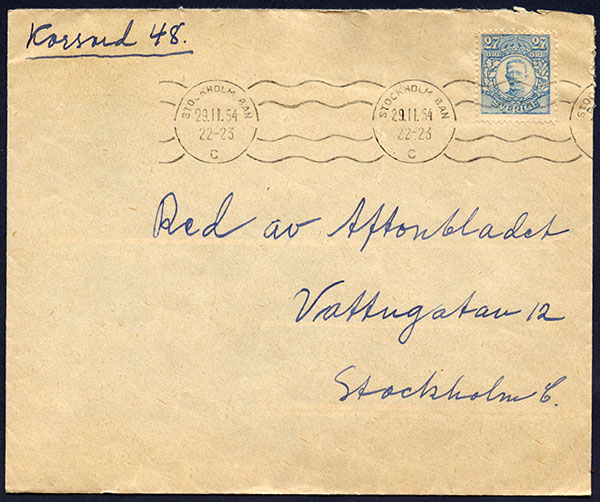 Korsord 48.
27 27
ÖRE ÖRE
SVERIGE
STOCKHOLM BAN
29.11.54
22-23
C
STOCKHOLM BAN
29.11.54
22-23
C
STO
Red av Aftonbladet
Vattugatan 12
Stockholm C.